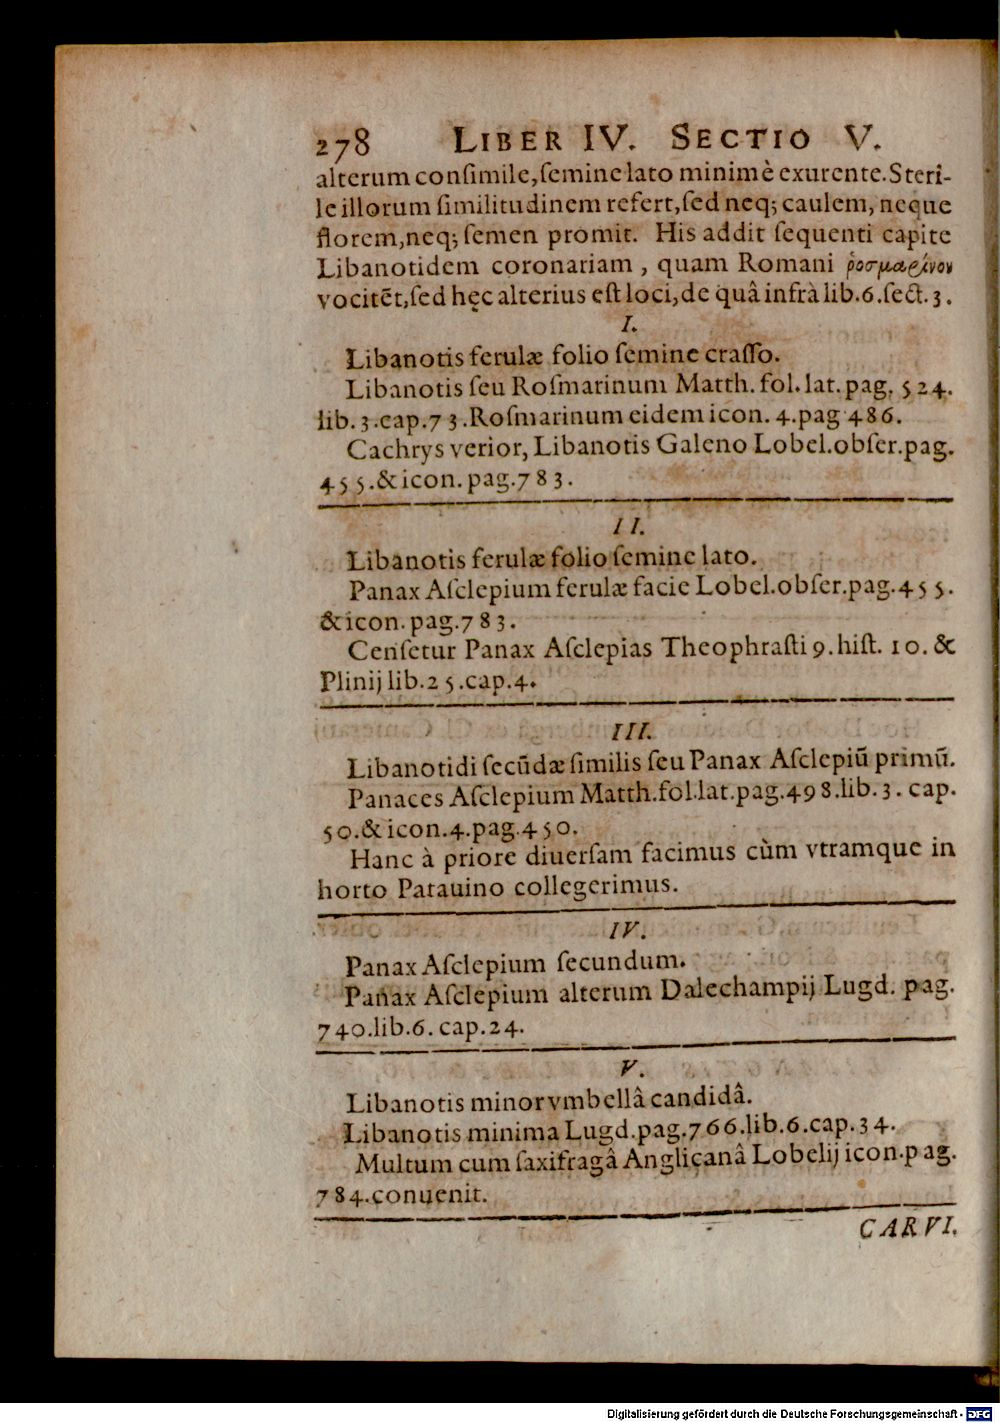 278 LIBER IV. SECTIO V.
alterum conſimile,ſemine lato minimè exurente.Steri-
le illorum ſimilitudinem refert,ſed neq; caulem, neque
florem,neq; ſemen promit. His addit ſequenti capite
Libanotidem coronariam , quam Romani ῥοσμαρίνον
vocitẽt,ſed hęc alterius eſt loci,de quâ infrà lib.6.ſect.3.
I.
Libanotis ferulæ folio ſemine craſſo.
Libanotis ſeu Roſmarinum Matth. fol. lat. pag. 524.
lib.3.cap.73.Roſmarinum eidem icon. 4.pag 486.
Cachrys verior, Libanotis Galeno Lobel.obſer.pag.
455.& icon. pag.783.
II.
Libanotis ferulæ folio ſemine lato.
Panax Aſclepium ferulæ facie Lobel.obſer.pag.455.
& icon. pag.783.
Cenſetur Panax Aſclepias Theophraſti 9. hiſt. 10. &
Plinij lib.25.cap.4.
III.
Libanotidi ſecũdæ ſimilis ſeu Panax Aſclepiũ primũ.
Panaces Aſclepium Matth.fol.lat.pag.498.lib.3. cap.
50.& icon.4.pag.450.
Hanc à priore diuerſam facimus cùm vtramque in
horto Patauino collegerimus.
IV.
Panax Aſclepium ſecundum.
Panax Aſclepium alterum Dalechampij Lugd. pag.
740.lib.6. cap.24.
V.
Libanotis minor vmbellâ candidâ.
Libanotis minima Lugd.pag.766.lib.6.cap.34.
Multum cum ſaxifragâ Anglicanâ Lobelij icon.pag.
784.conuenit.
CARVI.
Digitalisierung gefördert durch die Deutsche Forschungsgemeinschaft - DFG